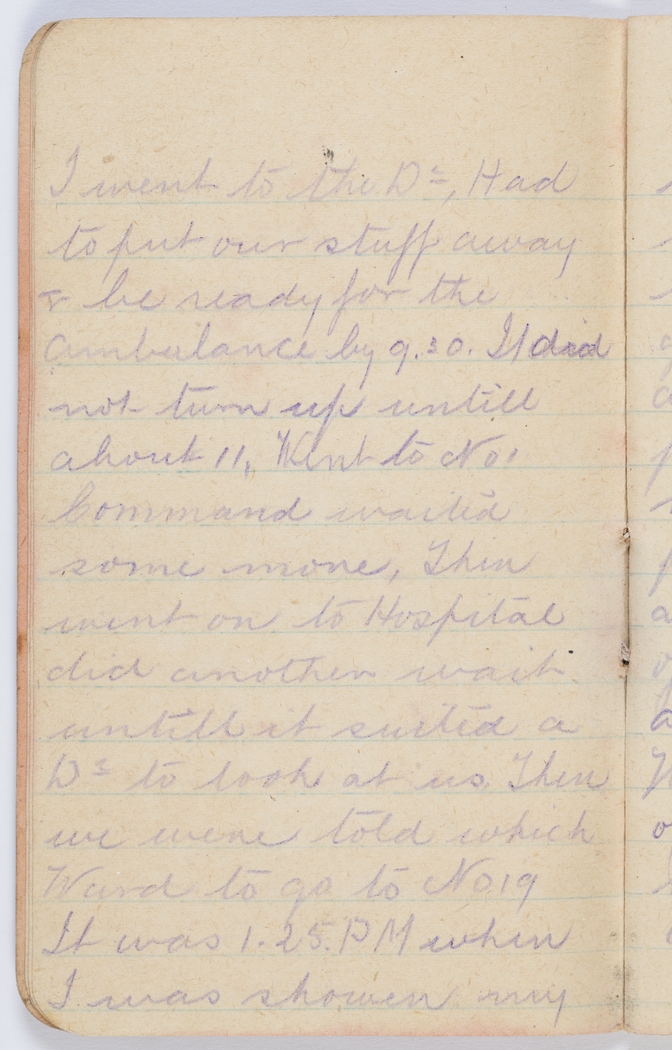 I went to the Dr, Had
to put our stuff away
& be ready for the
ambulance by 9.30. It did
not turn up untill
about 11, Went to No 1
Command waited
some more, Then
went on to Hospital
did another wait
untill it suited a
Dr to look at us. Then
we were told which
Ward to go to No 19
It was 1.25. PM when
I was showen my